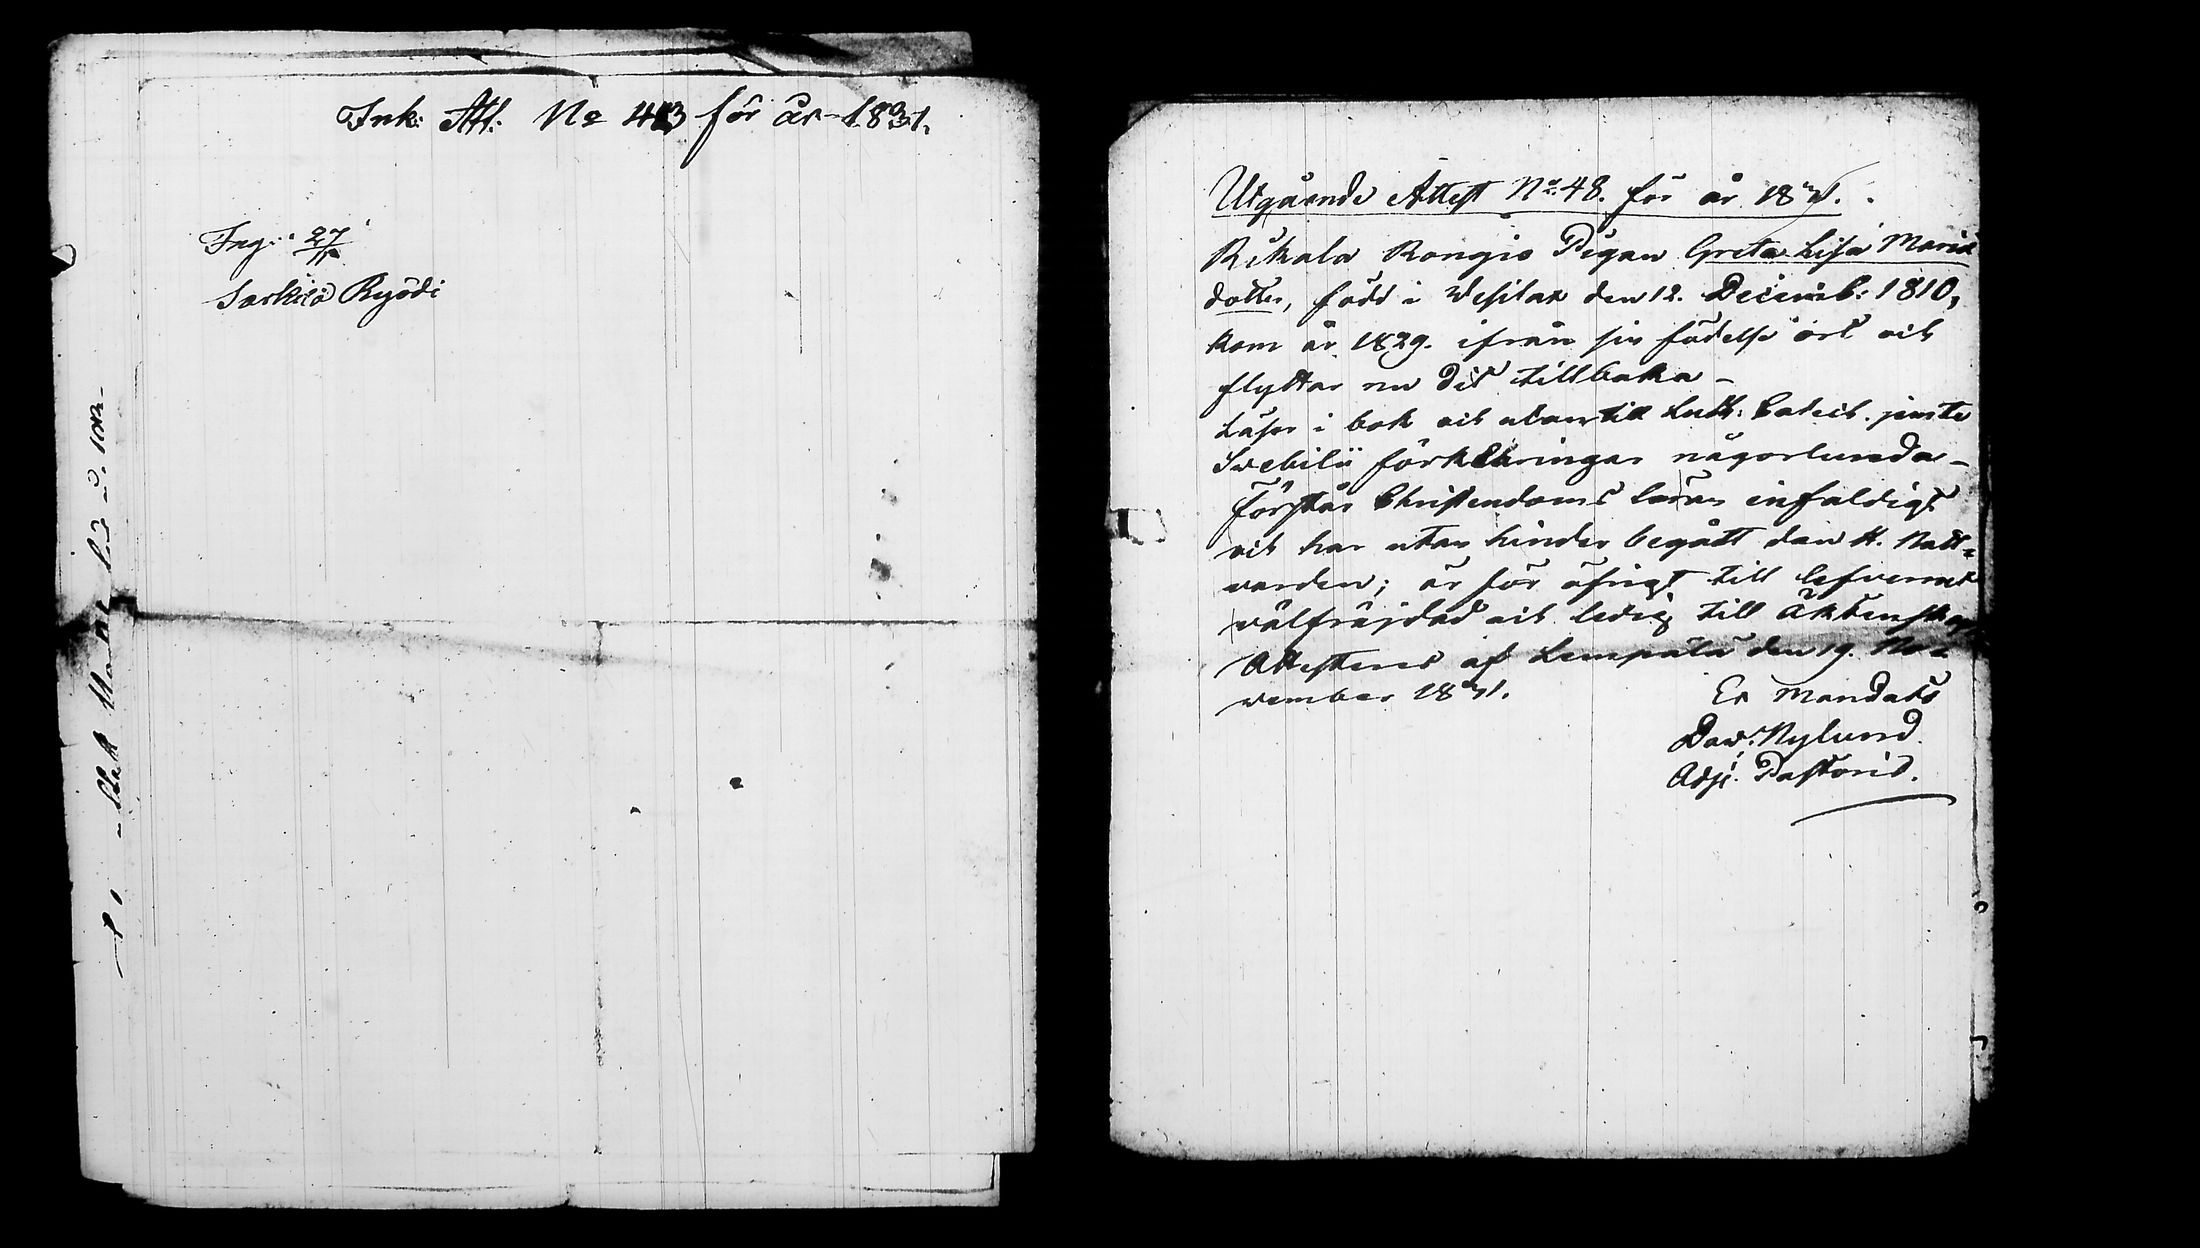 Ink: Att: No 43 för år 1831.
Ing: 27/11
Sarkila Ryödi
Utgående Attest No 48. för år 1831.
Kukala Rongis Pigan Greta Lisa Maria
dotter, född i Wesilax den 12. Decemb: 1810,
kom år 1829. ifrån sin födelse ort och
flyttar nu dit tillbaka –
Läser i bok och utantill Luth: Catech. jemte
Swebilii förklaringar någorlunda –
Förstår Christendoms läran enfaldigt
och har utan hinder begått den H. Natt=
varden; är för öfrigt till lefvernet
välfräjdad och ledig till Äktenskap
Attesteras af Lempälä den 19. No=
vember 1831.
Ex Mandato
Dav. Nylund
Adj. Pastoris.